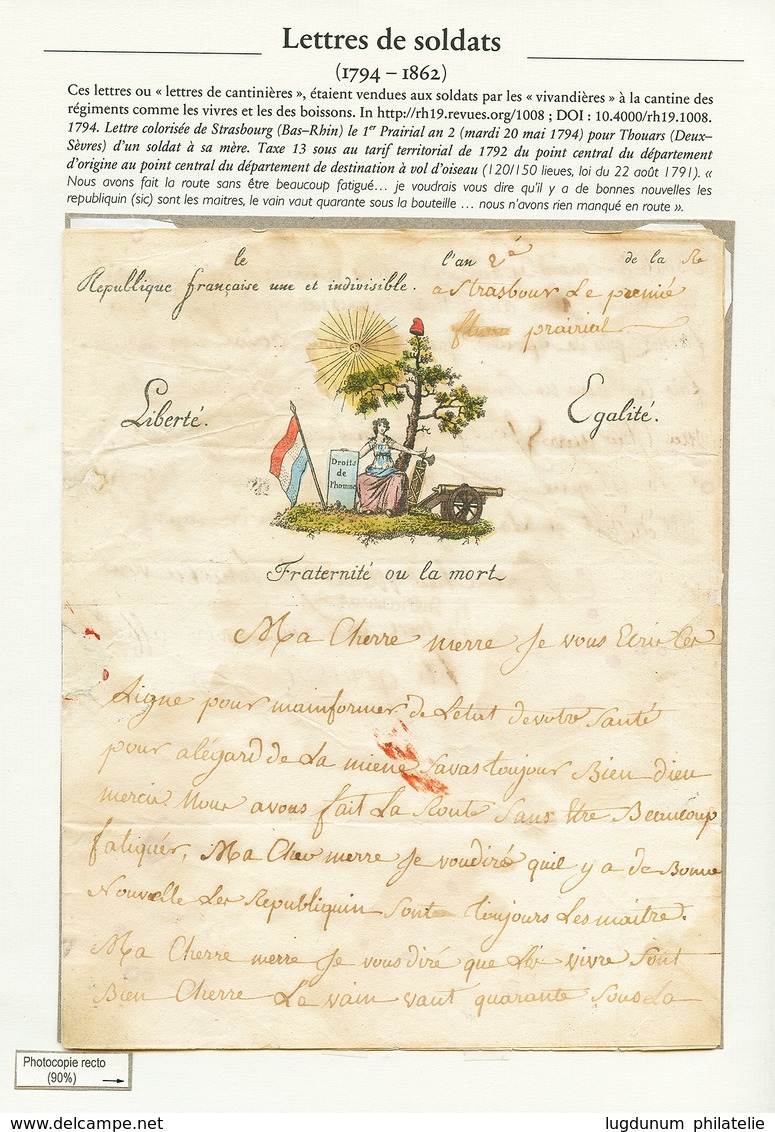 Lettres de soldats
(1794 – 1862)
Ces lettres ou « lettres de cantinières », étaient vendues aux soldats par les « vivandières » à la cantine des
régiments comme les vivres et les des boissons. In http://rh19.revues.org/1008 ; DOI : 10.4000/rh19.1008.
1794. Lettre colorisée de Strasbourg (Bas–Rhin) le 1er Prairial an 2 (mardi 20 mai 1794) pour Thouars (Deux–
Sèvres) d'un soldat à sa mère. Taxe 13 sous au tarif territorial de 1792 du point central du département
d'origine au point central du département de destination à vol d'oiseau (120/150 lieues, loi du 22 août 1791). «
Nous avons fait la route sans être beaucoup fatigué… je voudrais vous dire qu'il y a de bonnes nouvelles les
republiquin (sic) sont les maitres, le vain vaut quarante sous la bouteille … nous n'avons rien manqué en route ».
le l'an 2é de la Re
Republique française une et indivisible. a Strasbour Le premié
prairial
Liberté. Egalité.
Droits
de
l'homme
Fraternité ou la mort
Ma Cherre merre Je vous Ecris Ces
Ligne pour mainformer de Letat de votre Santé
pour alégard de La miene Savas toujour Bien dieu
mercie. Nous avons fait La Route Sans Etre Beaucoup
fatiquér, Ma Cher merre Je voudiré quil y a de Bonne
Nouvelle Les Republiquin Sont toujours Les maitre.
Ma Cherre merre Je vous diré que Les vivre Sont
Bien Cherre Le vain vaut quarante Sous La
Photocopie recto
(90%)
www.delcampe.net lugdunum philatelie